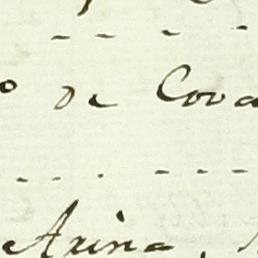 o de Cova
Axina,